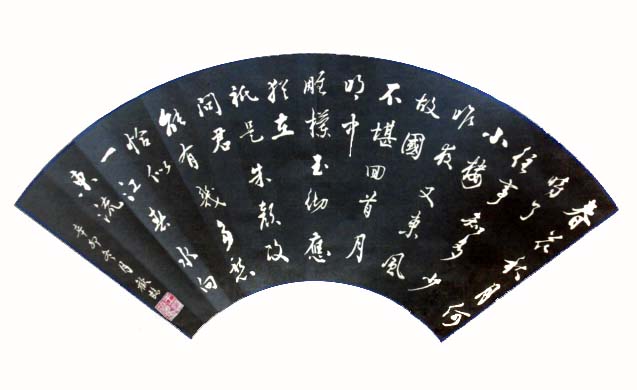 春花秋月何
時了
往事知多少
小樓
昨夜又東風
故國
不堪回首月
明中
雕欄玉砌應
猶在
祇是朱顏改
問君
能有幾多愁
恰似
一江春水向
東流
辛卯冬月